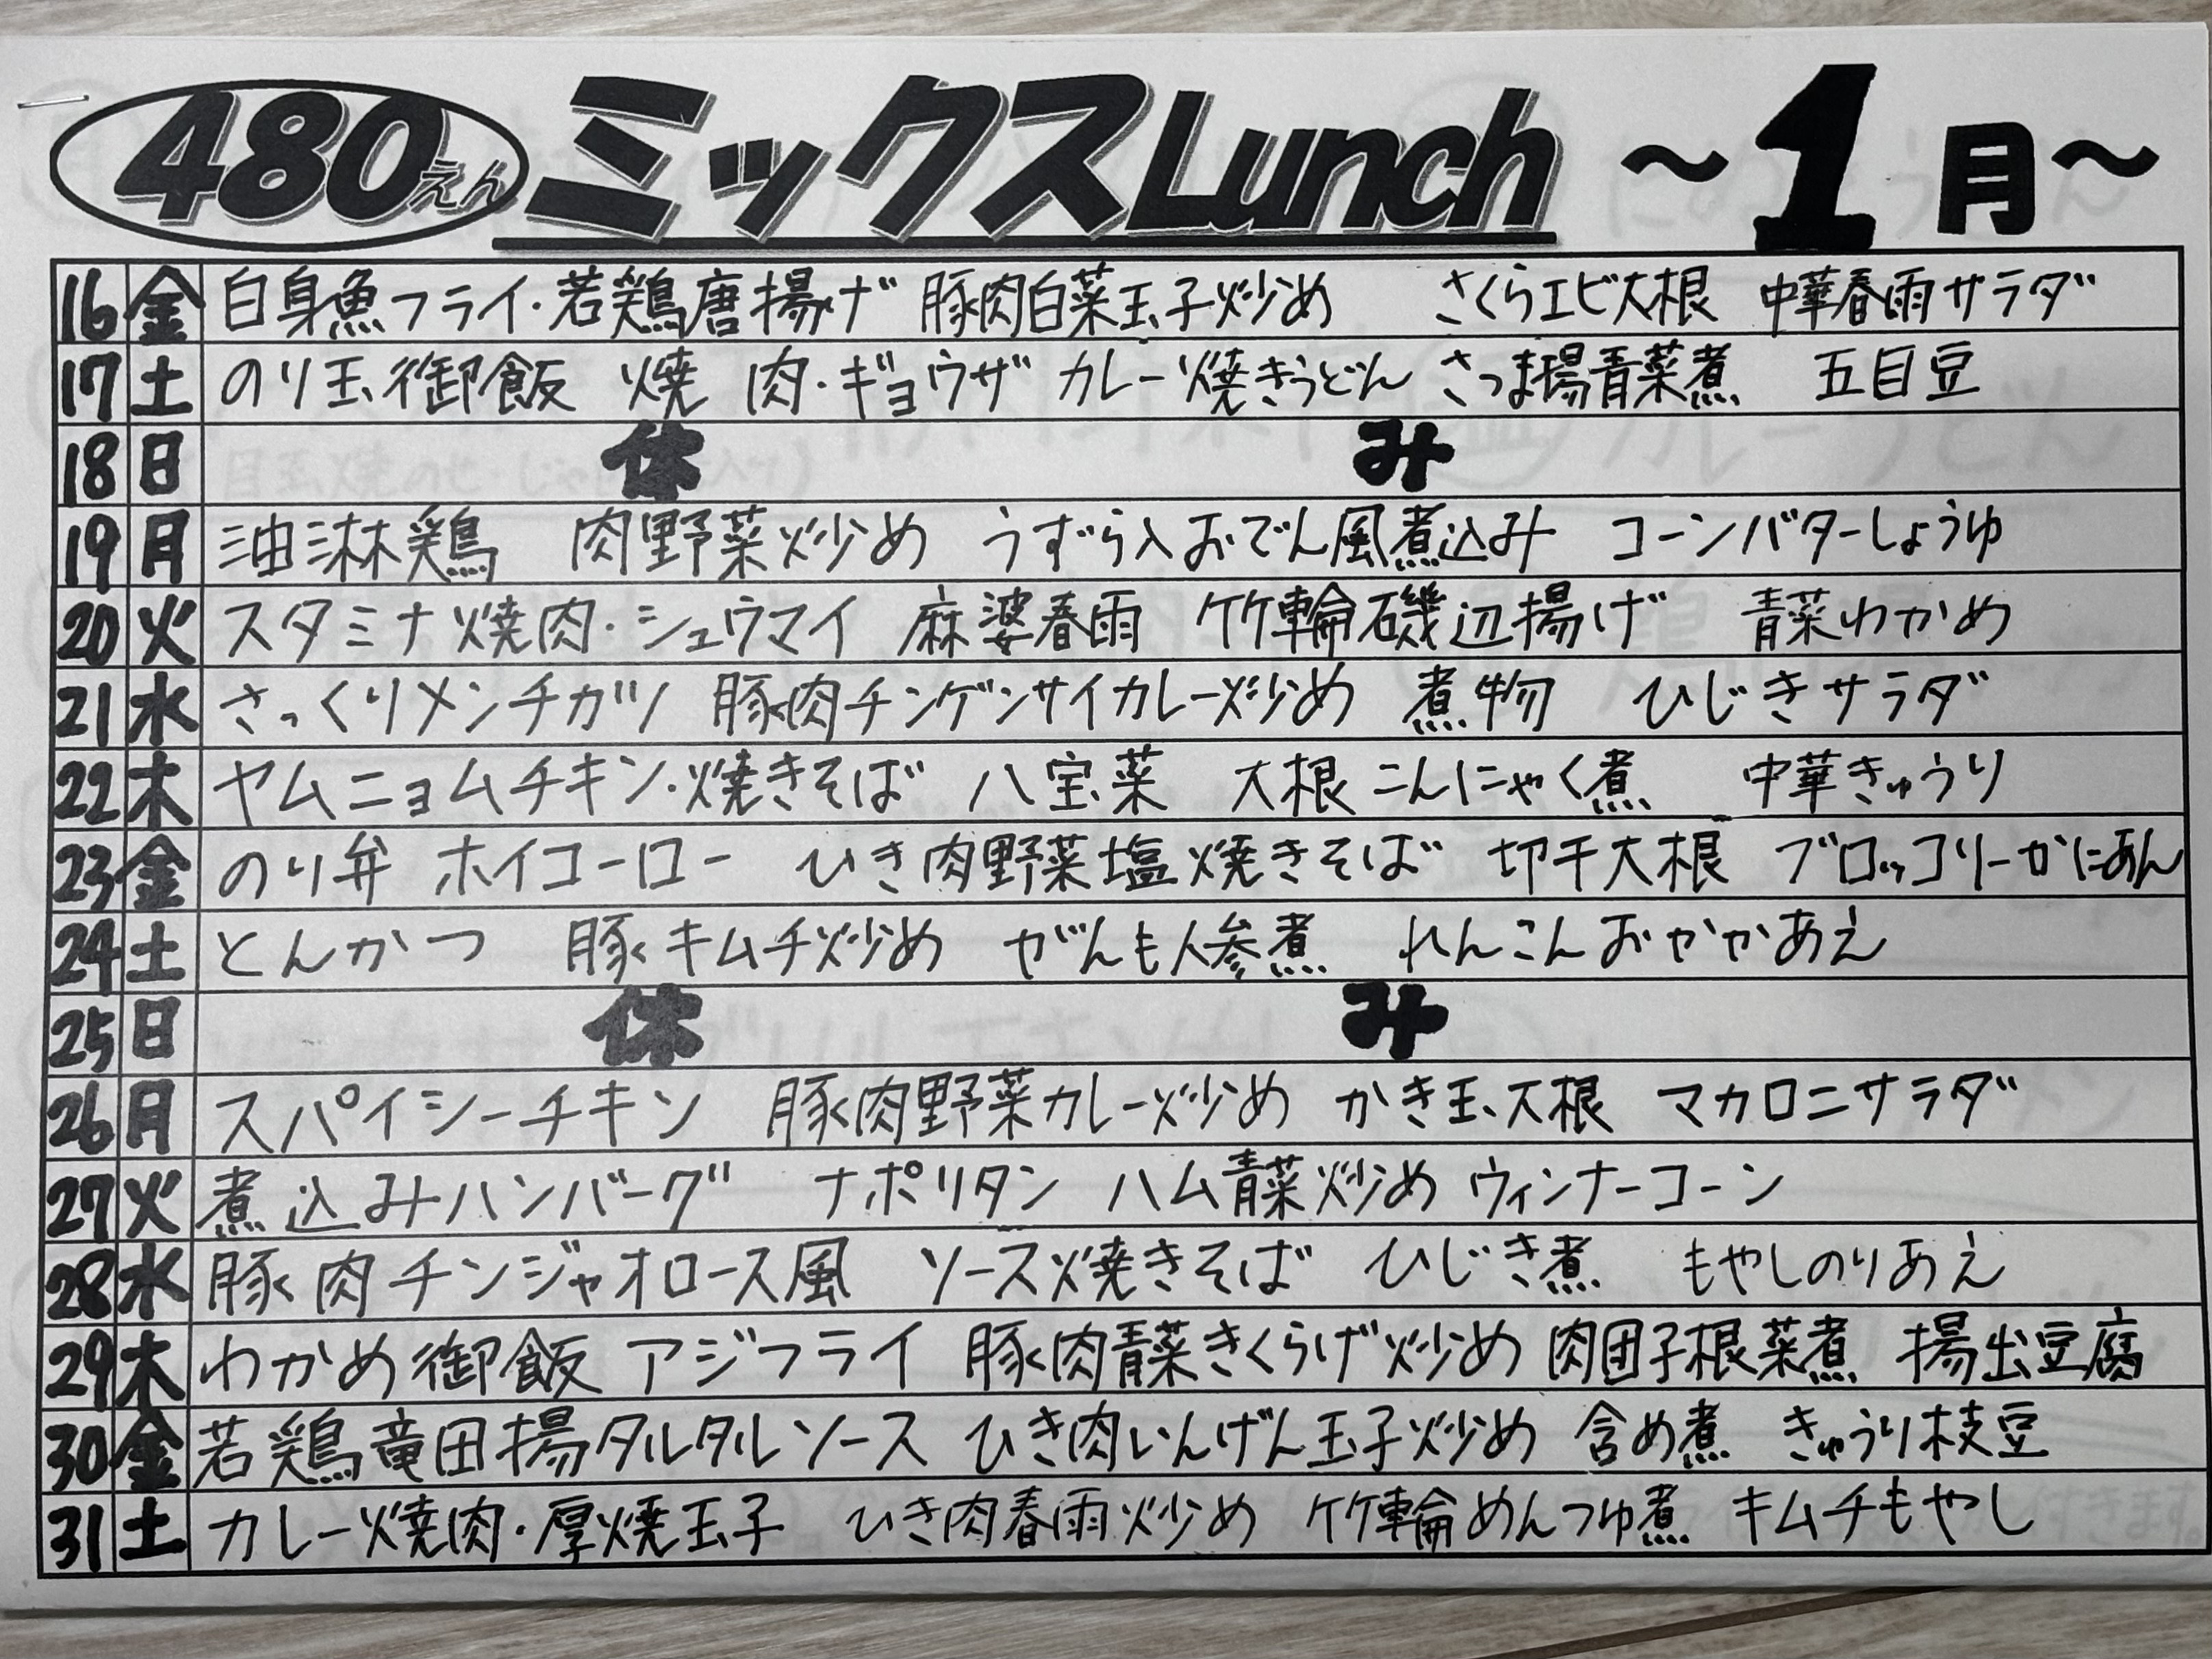 480えん ミックスLunch ～1月～
16 金 白身魚フライ・若鶏唐揚げ 豚肉白菜玉子炒め さくらエビ大根 中華春雨サラダ
17 土 のり玉御飯 焼 肉・ギョウザ カレー焼きうどん さつま揚青菜煮 五目豆
18 日 休 み
19 月 油淋鶏 肉野菜炒め うずら入おでん風煮込み コーンバターしょうゆ
20 火 スタミナ焼肉・シュウマイ 麻婆春雨 竹輪磯辺揚げ 青菜わかめ
21 水 さっくりメンチカツ 豚肉チンゲンサイカレー炒め 煮物 ひじきサラダ
22 木 ヤムニョムチキン・焼きそば 八宝菜 大根こんにゃく煮 中華きゅうり
23 金 のり弁 ホイコーロー ひき肉野菜塩焼きそば 切干大根 ブロッコリーかにあん
24 土 とんかつ 豚キムチ炒め がんも人参煮 れんこんおかかあえ
25 日 休 み
26 月 スパイシーチキン 豚肉野菜カレー炒め かき玉大根 マカロニサラダ
27 火 煮込みハンバーグ ナポリタン ハム青菜炒め ウィンナーコーン
28 水 豚肉チンジャオロース風 ソース焼きそば ひじき煮 もやしのりあえ
29 木 わかめ御飯 アジフライ 豚肉青菜きくらげ炒め 肉団子根菜煮 揚出豆腐
30 金 若鶏竜田揚タルタルソース ひき肉いんげん玉子炒め 含め煮 きゅうり枝豆
31 土 カレー焼肉・厚焼玉子 ひき肉春雨炒め 竹輪めんつゆ煮 キムチもやし